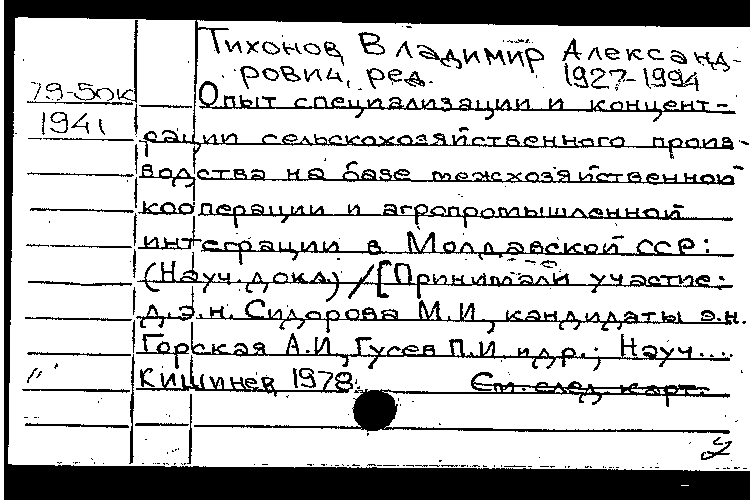 Тихонов Владимир Александ-
рович, ред. 1927-1994
79-50к Опыт специализации и концент-
1941 рации сельскохозяйственного произ-
водства на базе межхозяйственной
кооперации и агропромышленной
интеграции в Молдавской ССР:
(Науч. докл.) / [Принимали участие:
д.э.н. Сидорова М.И., кандидаты э.н.
Горская А.И., Гусев П.И. и др.; Науч...
Кишинев, 1978. См. след. карт.